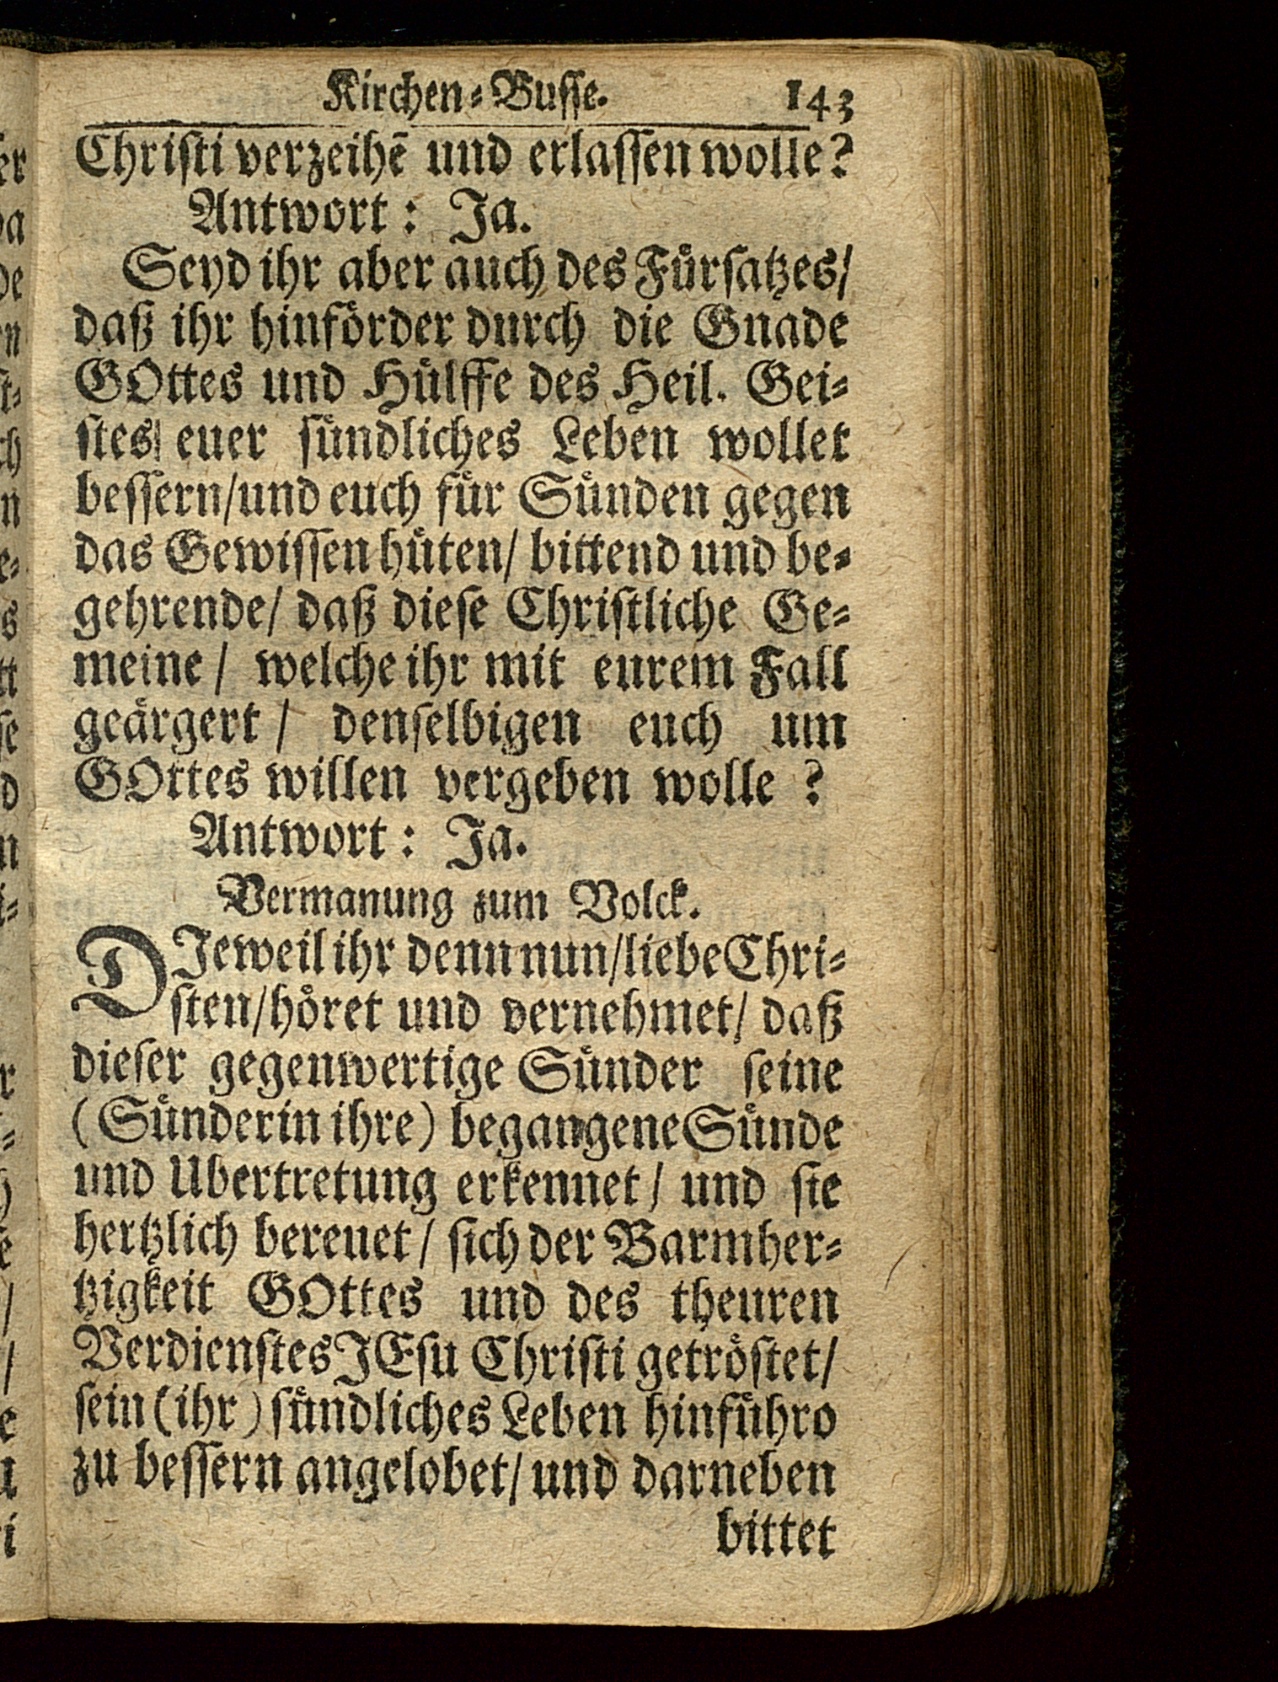 Kirchen-Busse. 143
Christi verzeihē und erlassen wolle?
Antwort: Ja.
Seyd ihr aber auch des Fürsatzes/
daß ihr hinförder durch die Gnade
GOttes und Hülffe des Heil. Gei-
stes/ euer sündliches Leben wollet
bessern/und euch für Sünden gegen
das Gewissen hüten/ bittend und be-
gehrende/ daß diese Christliche Ge-
meine/ welche ihr mit eurem Fall
geärgert/ denselbigen euch um
GOttes willen vergeben wolle ?
Antwort: Ja.
Vermanung zum Volck.
DJeweil ihr denn nun/liebe Chri-
sten/höret und vernehmet/ daß
dieser gegenwertige Sünder seine
(Sünderin ihre) begangene Sünde
und Ubertretung erkennet/ und sie
hertzlich bereuet/ sich der Barmher-
tzigkeit GOttes und des theuren
Verdienstes JEsu Christi getröstet/
sein (ihr) sündliches Leben hinführo
zu bessern angelobet/ und darneben
bittet